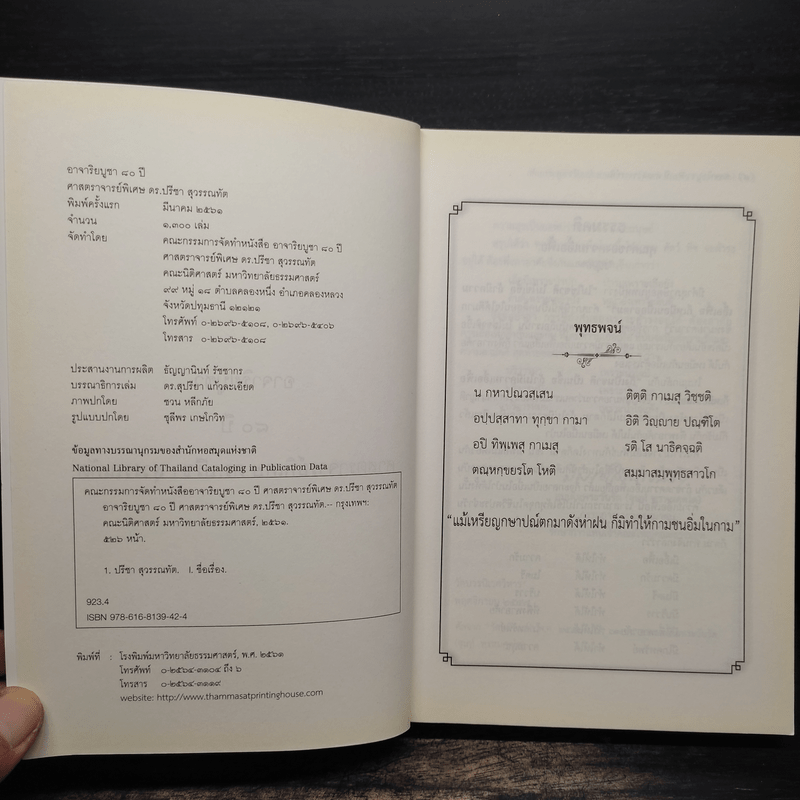 อาจาริยบูชา ๘๐ ปี
ศาสตราจารย์พิเศษ ดร.ปรีชา สุวรรณทัต
พิมพ์ครั้งแรก มีนาคม ๒๕๖๑
จำนวน ๑,๓๐๐ เล่ม
จัดทำโดย คณะกรรมการจัดทำหนังสือ อาจาริยบูชา ๘๐ ปี
ศาสตราจารย์พิเศษ ดร.ปรีชา สุวรรณทัต
คณะนิติศาสตร์ มหาวิทยาลัยธรรมศาสตร์
๙๙ หมู่ ๑๘ ตำบลคลองหนึ่ง อำเภอคลองหลวง
จังหวัดปทุมธานี ๑๒๑๒๑
โทรศัพท์ ๐-๒๖๙๖-๕๑๐๘, ๐-๒๖๙๖-๕๔๐๖
โทรสาร ๐-๒๖๙๖-๕๑๐๘
ประสานงานการผลิต ธัญญานินท์ รัชชากร
บรรณาธิการเล่ม ดร.สุปรียา แก้วละเอียด
ภาพปกโดย ชวน หลีกภัย
รูปแบบปกโดย ชุลีพร เกษโกวิท
ข้อมูลทางบรรณานุกรมของสำนักหอสมุดแห่งชาติ
National Library of Thailand Cataloging in Publication Data
คณะกรรมการจัดทำหนังสืออาจาริยบูชา ๘๐ ปี ศาสตราจารย์พิเศษ ดร.ปรีชา สุวรรณทัต
อาจาริยบูชา ๘๐ ปี ศาสตราจารย์พิเศษ ดร.ปรีชา สุวรรณทัต.-- กรุงเทพฯ:
คณะนิติศาสตร์ มหาวิทยาลัยธรรมศาสตร์, ๒๕๖๑.
๕๒๖ หน้า.
1. ปรีชา สุวรรณทัต. I. ชื่อเรื่อง.
923.4
ISBN 978-616-8139-42-4
พิมพ์ที่ : โรงพิมพ์มหาวิทยาลัยธรรมศาสตร์, พ.ศ. ๒๕๖๑
โทรศัพท์ ๐-๒๕๖๔-๓๑๐๔ ถึง ๖
โทรสาร ๐-๒๕๖๔-๓๑๑๙
website: http://www.thammasatprintinghouse.com
พุทธพจน์
น กหาปณวสฺเสน ติตฺติ กาเมสุ วิชฺชติ
อปฺปสฺสาทา ทุกฺขา กามา อิติ วิญฺญาย ปณฺฑิโต
อปิ ทิพฺเพสุ กาเมสุ รติ โส นาธิคจฺฉติ
ตณฺหกฺขยรโต โหติ สมฺมาสมฺพุทฺธสาวโก
“แม้เหรียญกษาปณ์ตกมาดังห่าฝน ก็มิทำให้กามชนอิ่มในกาม”